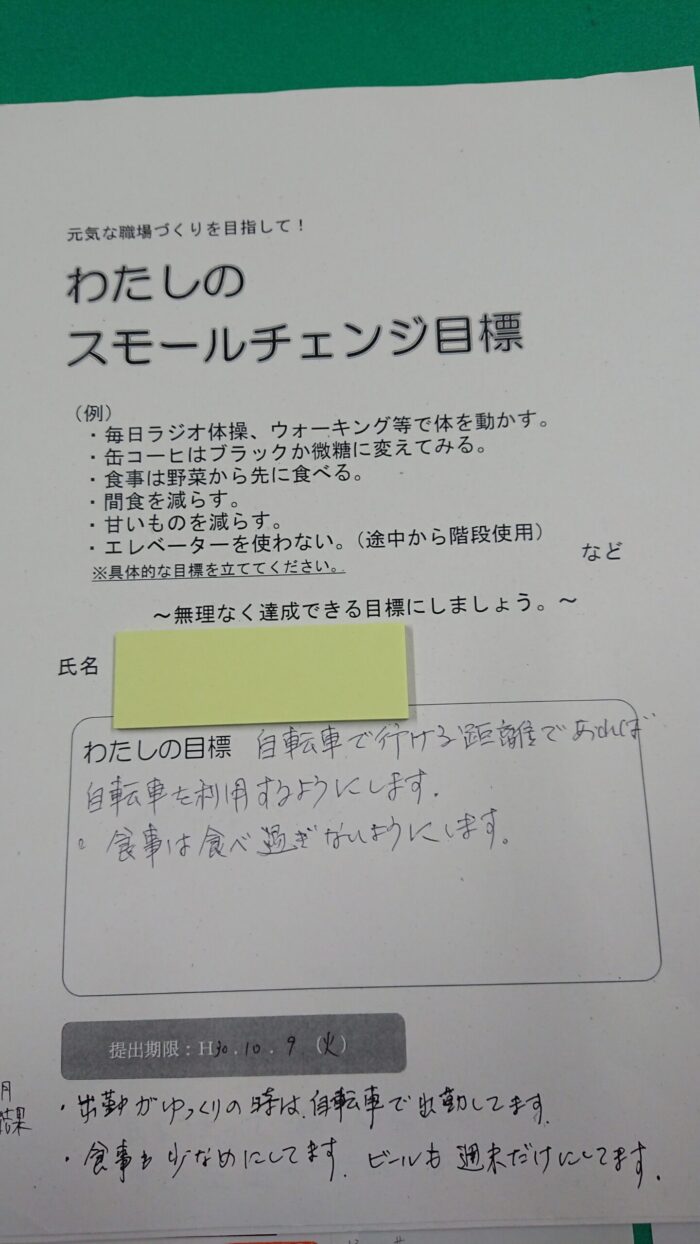 元気な職場づくりを目指して！
わたしの
スモールチェンジ目標
（例）
・毎日ラジオ体操、ウォーキング等で体を動かす。
・缶コーヒはブラックか微糖に変えてみる。
・食事は野菜から先に食べる。
・間食を減らす。
・甘いものを減らす。
・エレベーターを使わない。（途中から階段使用）
など
※具体的な目標を立ててください。
～無理なく達成できる目標にしましょう。～
氏名
わたしの目標 自転車で行ける距離であれば
自転車を利用するようにします。
。食事は食べ過ぎないようにします。
提出期限：H30.10.9（火）
月
結果
・出勤がゆっくりの時は、自転車で出勤してます。
・食事も少なめにしてます。ビールも週末だけにしてます。